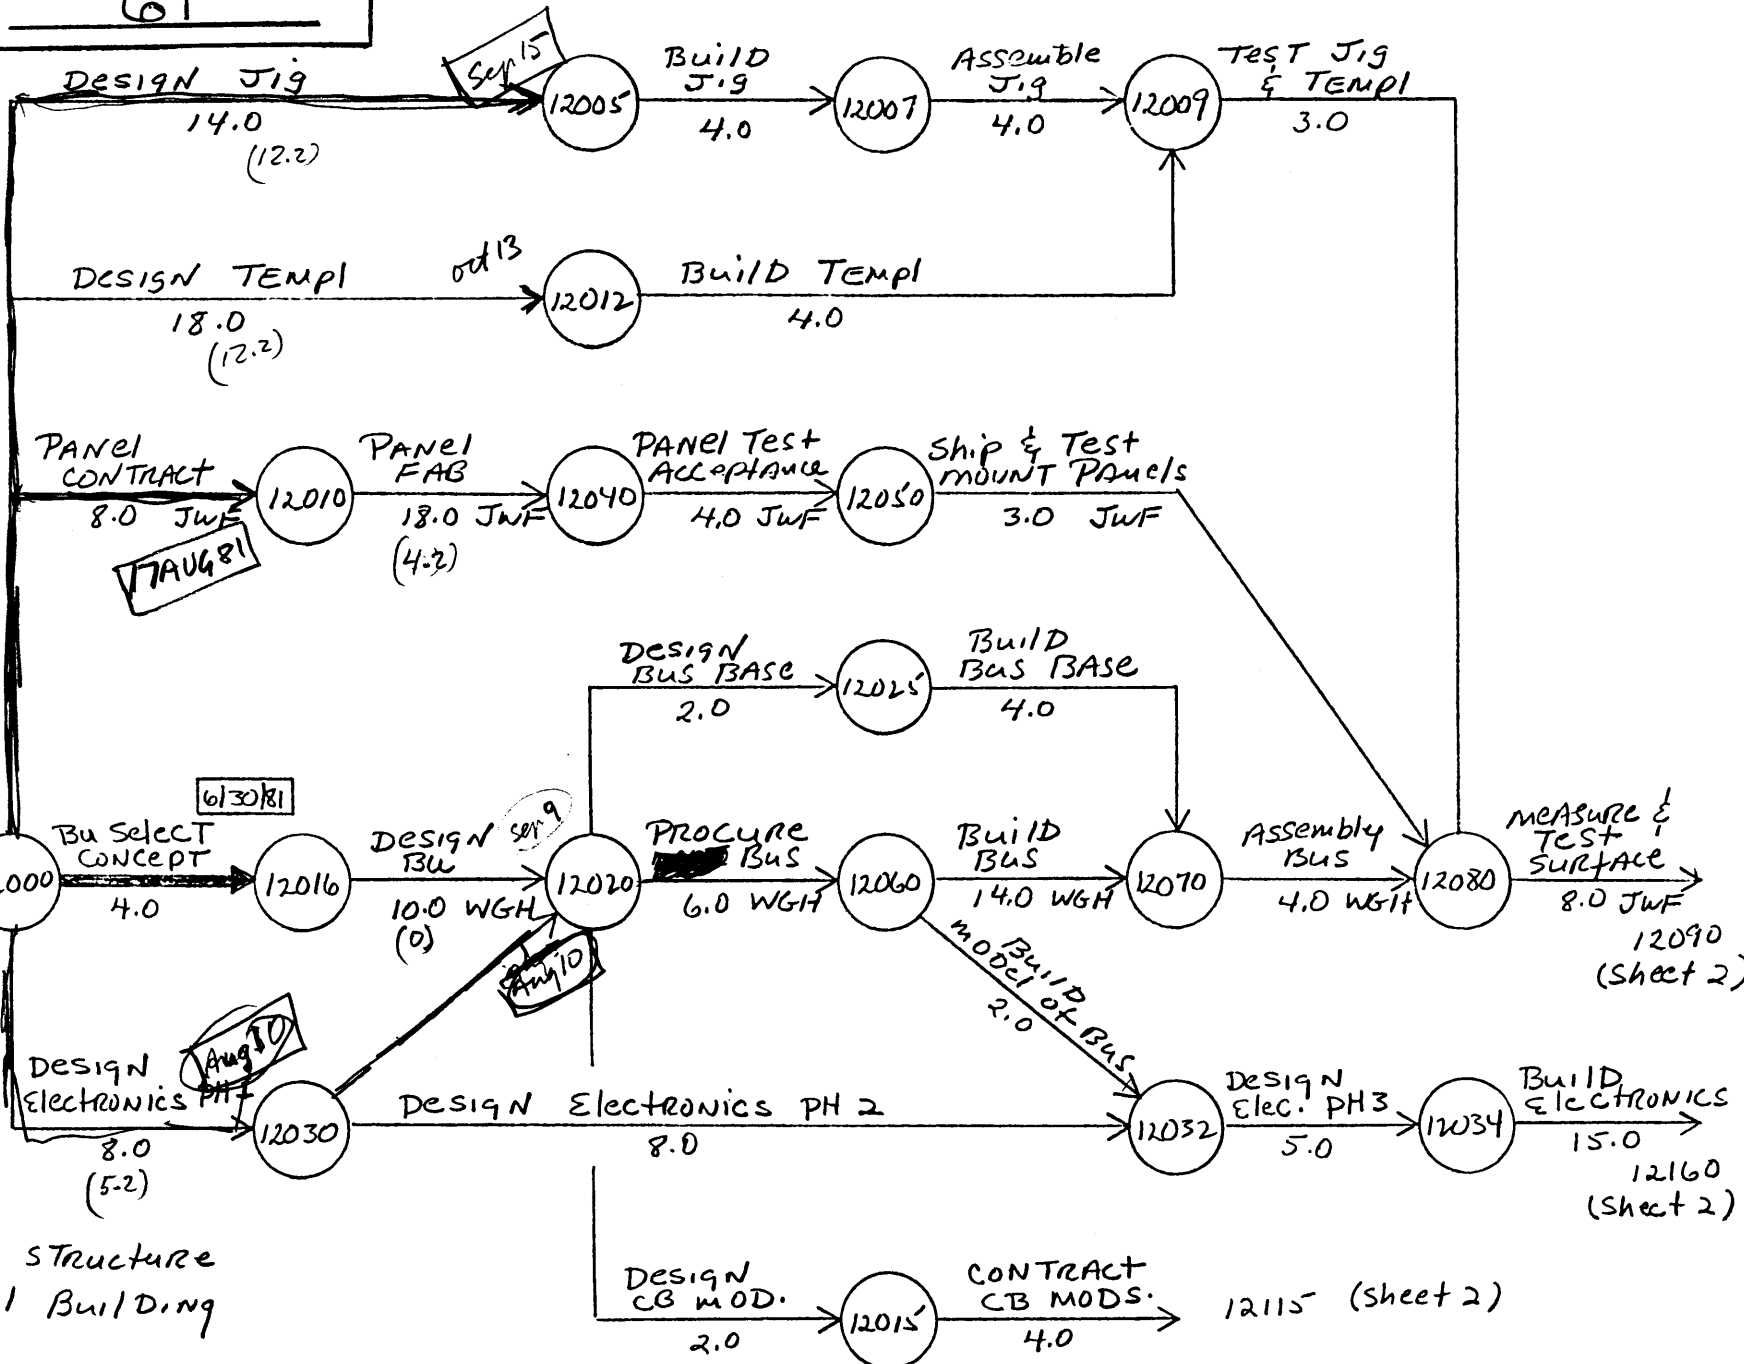 61
DESIGN JIG
14.0
(12.2)
Sep 15
12005
BUILD
JIG
4.0
12007
ASSEMBLE
JIG
4.0
12009
TEST JIG
& TEMPL
3.0
DESIGN TEMPL
18.0
(12.2)
oct 13
12012
BUILD TEMPL
4.0
PANEL
CONTRACT
8.0 JWF
17AUG81
12010
PANEL
FAB
18.0 JWF
(4.2)
12040
PANEL TEST
ACCEPTANCE
4.0 JWF
12050
Ship & Test
MOUNT PANELS
3.0 JWF
DESIGN
BUS BASE
2.0
12025
BUILD
BUS BASE
4.0
6/30/81
000
BU SELECT
CONCEPT
4.0
12016
DESIGN
BU
sep 9
10.0 WGH
(0)
12020
Aug 10
PROCURE
BUS
6.0 WGH
12060
BUILD
BUS
14.0 WGH
12070
ASSEMBLY
BUS
4.0 WGH
12080
MEASURE &
TEST
SURFACE
8.0 JWF
12090
(Sheet 2)
BUILD
MODEL OF BUS
2.0
Aug 10
DESIGN
ELECTRONICS PH 1
8.0
(5.2)
12030
DESIGN ELECTRONICS PH 2
8.0
12032
DESIGN
ELEC. PH3
5.0
12034
BUILD
ELECTRONICS
15.0
12160
(Sheet 2)
STRUCTURE
1 BUILDING
DESIGN
CB MOD.
2.0
12015
CONTRACT
CB MODS.
4.0
12115 (Sheet 2)